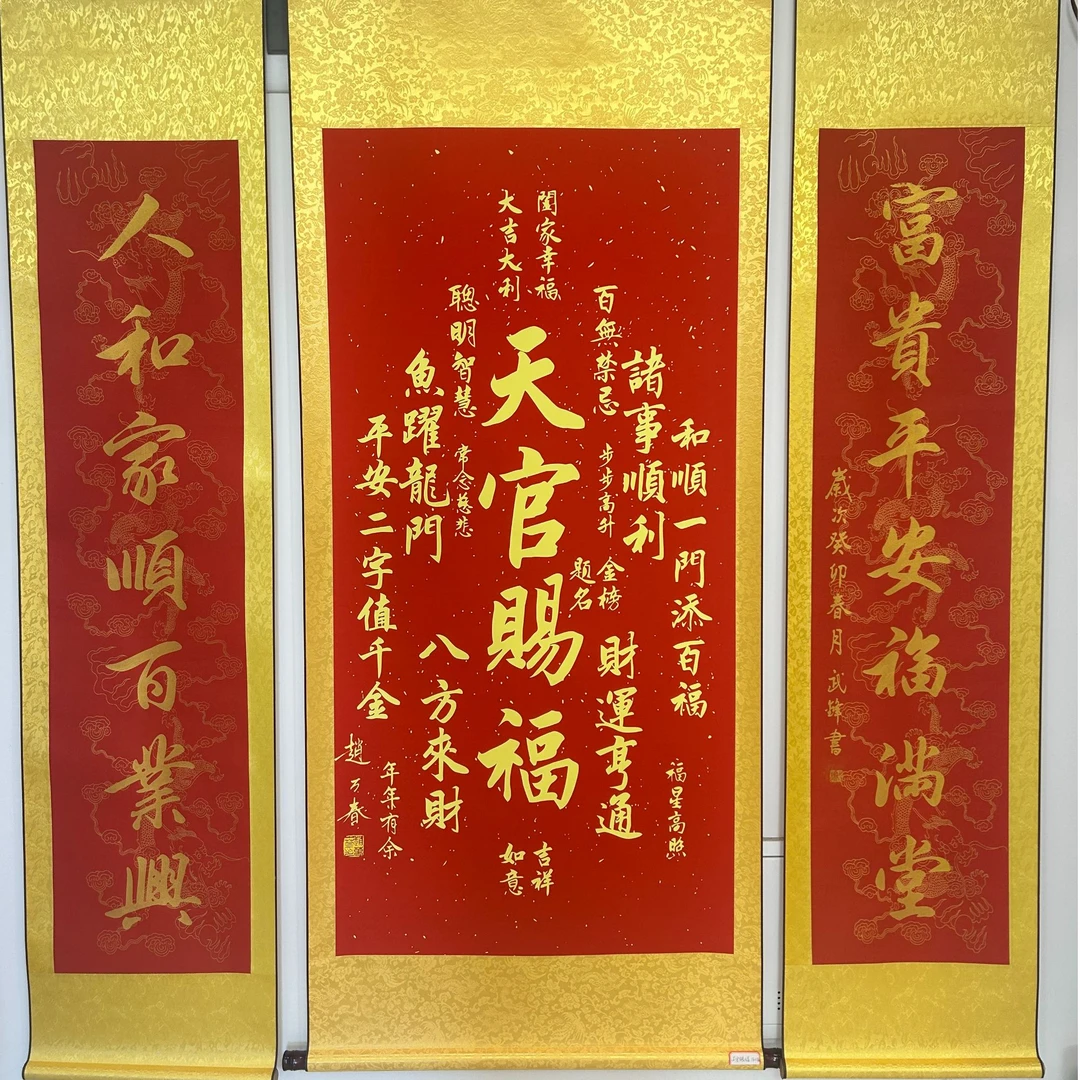 富貴平安福满堂
歲次癸卯春月武輝書
和順一門添百福
福星高照
諸事順利
百無禁忌
步步高升
金榜
題名
財運亨通
闔家幸福
大吉大利
天官賜福
吉祥
如意
聰明智慧
常念慈悲
魚躍龍門
八方來財
平安二字值千金
年年有余
趙万春
人和家順百業興